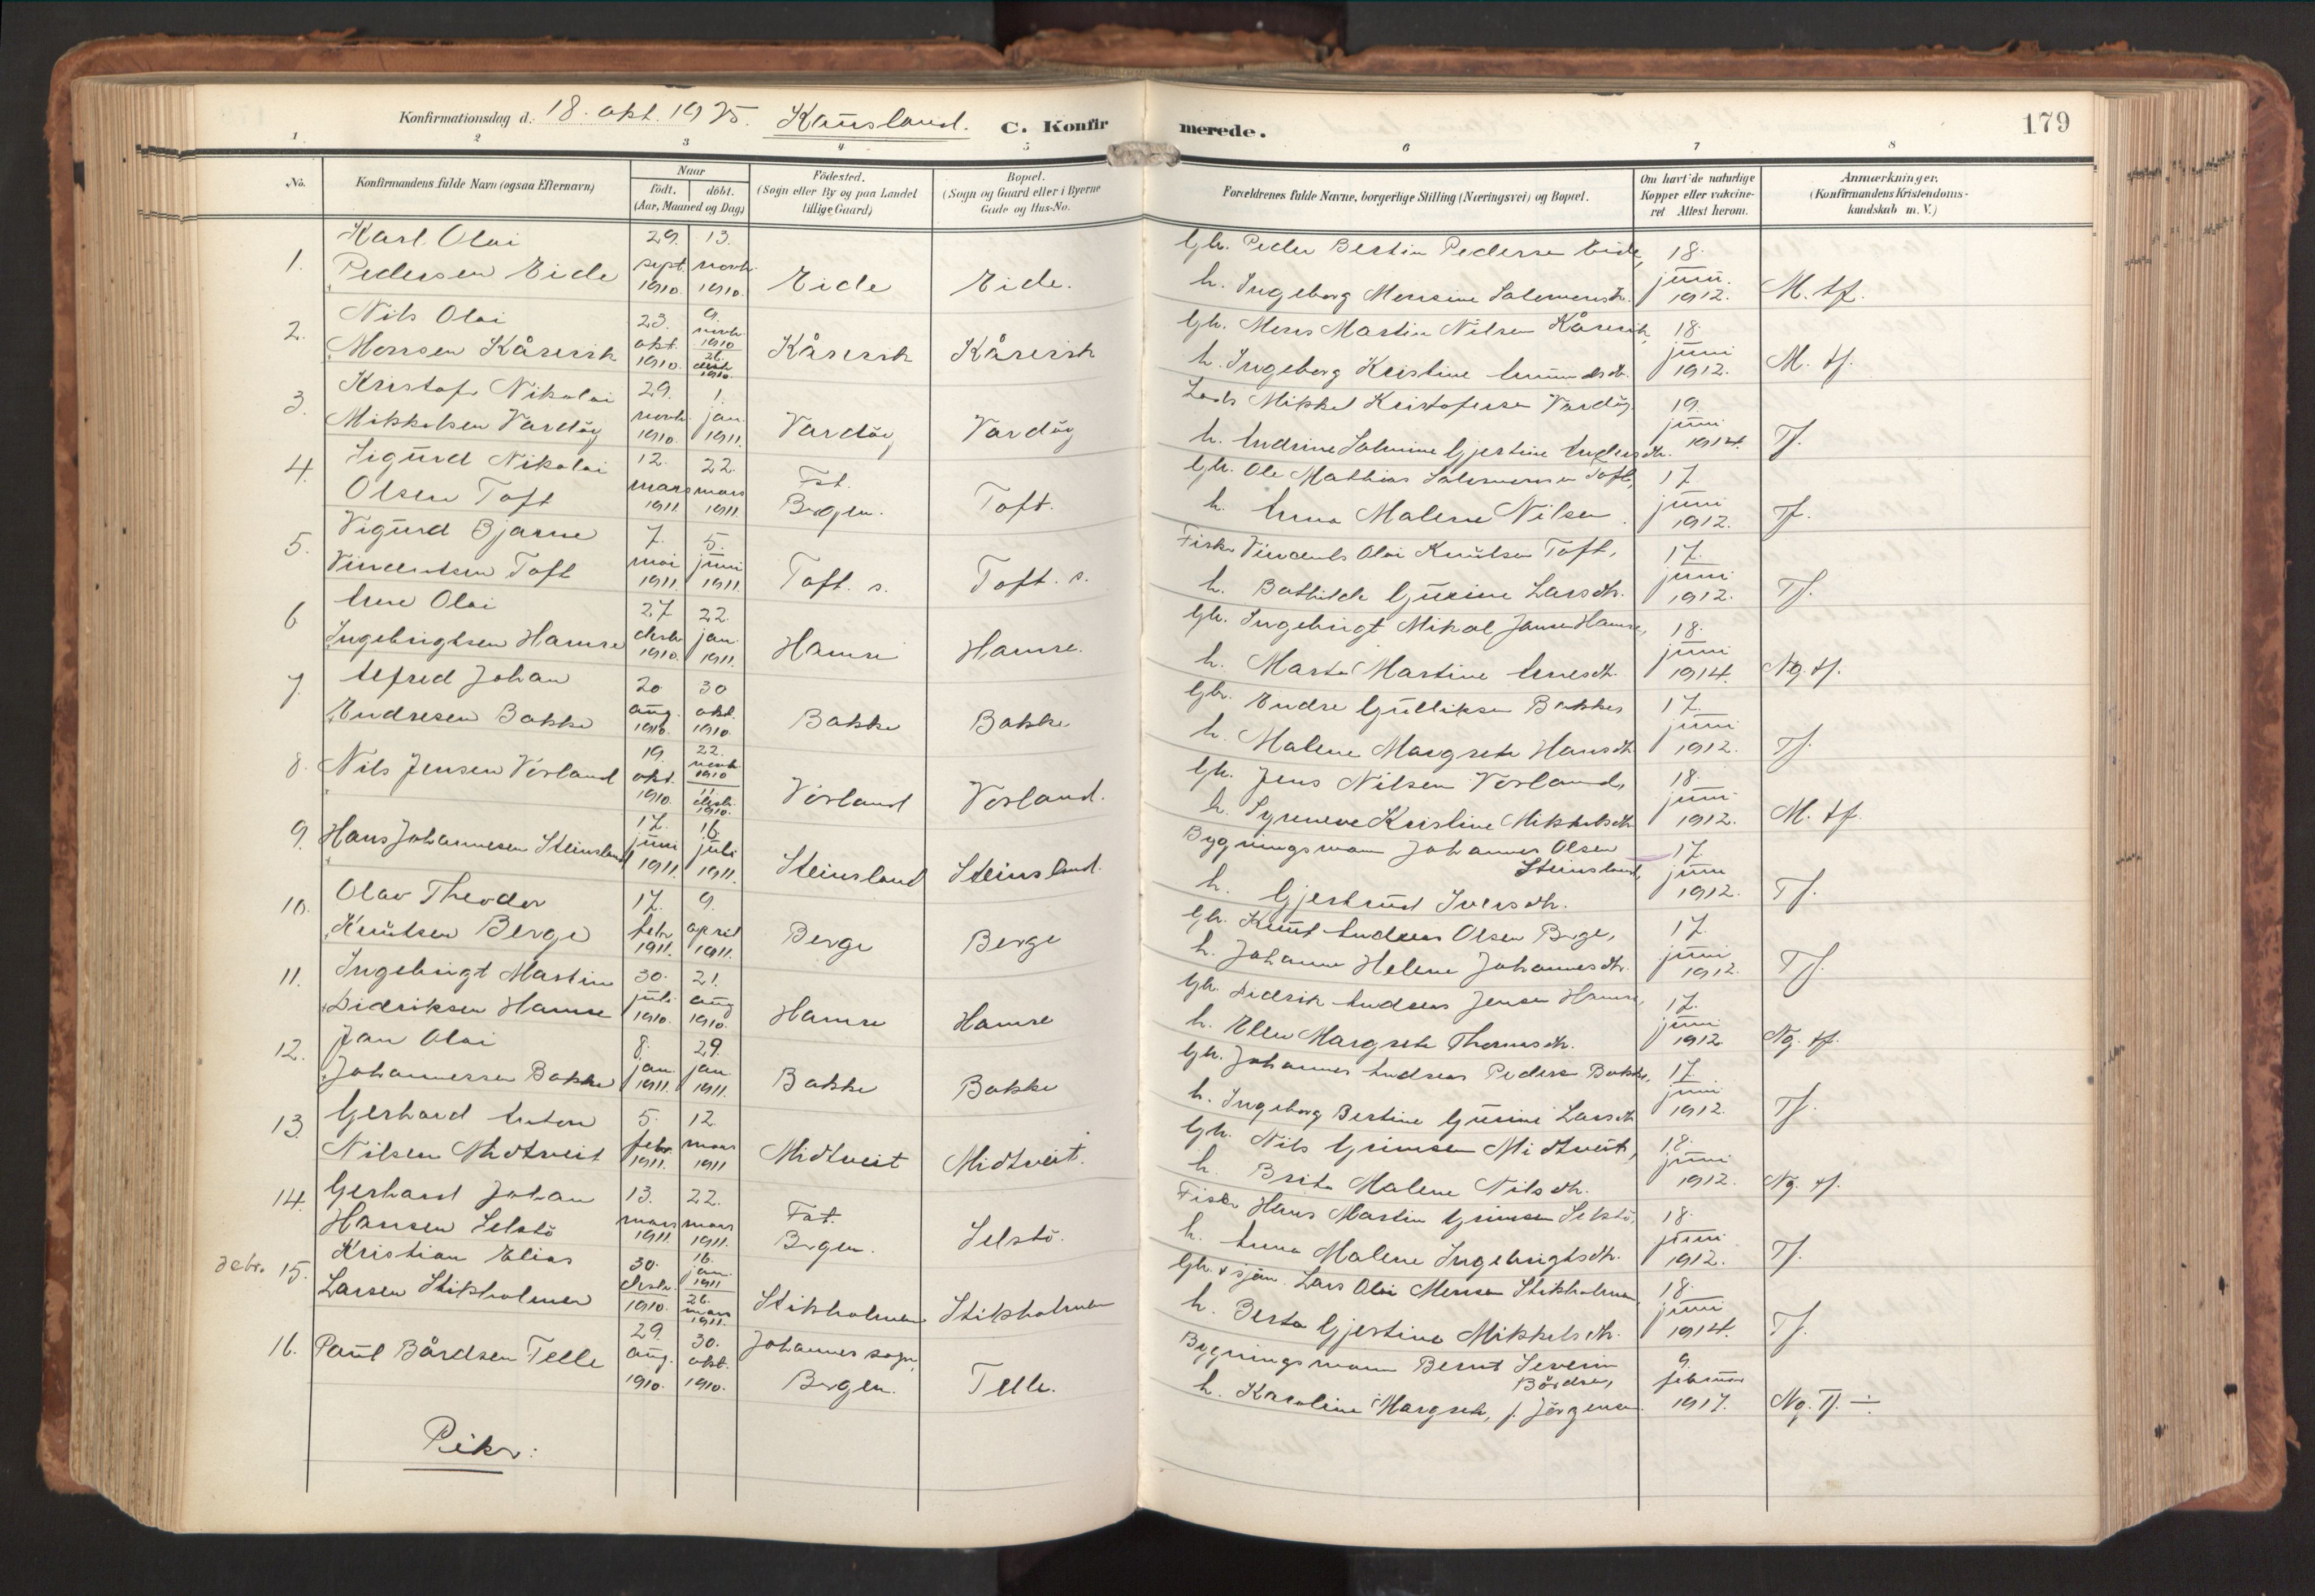 Konfirmationsdag d. 18. okt. 1925. Kausland. C. Konfirmerede. 179
1 2 3 4 5 6 7 8
No.
Konfirmandens fulde Navn (ogsaa Efternavn)
Naar
født. døbt.
(Aar, Maaned og Dag)
Fødested.
(Sogn eller By og paa Landet
tillige Gaard)
Bopæl.
(Sogn og Gaard eller i Byerne
Gade og Hus-No.
Forældrenes fulde Navne, borgerlige Stilling (Næringsvei) og Bopæl.
Om havt de naturlige
Kopper eller vakcine-
ret Attest herom.
Anmærkninger,
(Konfirmandens Kristendoms-
kundskab m. V.)
1. Karl Olai
Pedersen Eide
29. sept. 1910. 13. novb. 1910.
Eide Eide.
Gbr. Peder Bertin Pedersen Eide,
h. Ingeborg Monsine Salomonsdtr.
18. juni 1912. M. tf.
2. Nils Olai
Monsen Kårevik
23. okt. 1910. 9. novb. 1910 26. desb. 1910.
Kårevik Kårevik
Gbr. Mons Martin Nilsen Kårevik,
h. Ingeborg Kristine Amundsdtr.
18. juni 1912. M. tf.
3. Kristofer Nikolai
Mikkelsen Vardöy
29. novb. 1910. 1. jan. 1911.
Vardöy Vardöy
Lods Mikkel Kristofersen Vardöy
h. Andrine Salmine Gjertine Andersdtr.
19. juni 1914. Tf.
4. Sigurd Nikolai
Olsen Toft
12. mars 1911. 22. mars 1911.
Fst.
Bergen. Toft.
Gbr. Ole Mathias Salomonsen Toft,
h. Anna Malene Nilsen.
17. juni 1912. Tf.
5. Vigurd Bjarne
Vincentsen Toft
7. mai 1911. 5. juni 1911.
Toft. s. Toft. s.
Fisker Vincents Olai Knutsen Toft,
h. Bothilde Gurine Larsdtr.
17. juni 1912. Tf.
6 Arne Olai
Ingebrigtsen Hamre
27. desb. 1910. 22. jan. 1911.
Hamre Hamre.
Gbr. Ingebrigt Mikal Jansen Hamre,
h. Marta Martine Arnesdtr.
18. juni 1914. Ng. tf.
7. Alfred Johan
Endresen Bakke
20 aug. 1910. 30 okt. 1910.
Bakke Bakke
Gbr. Endre Gulliksen Bakke,
h. Malene Margrete Hansdtr.
17. juni 1912. Tf.
8. Nils Jensen Vorland
19. okt. 1910. 22. novb. 1910 11. desb. 1910.
Vorland Vorland.
Gbr. Jens Nilsen Vorland,
h. Synneve Kristine Mikkelsdtr.
18. juni 1912. M. tf.
9. Hans Johannesen Steinsland
17. juni 1911. 16. juli 1911.
Steinsland Steinsland.
Bygningsmann Johannes Olsen
Steinsland,
h. Gjertrud Iversdtr.
17. juni 1912. Tf.
10. Olav Theodor
Knutsen Berge
17. febr. 1911. 9. april 1911.
Berge Berge
Gbr. Knut Andreas Olsen Berge,
h. Johanne Helene Johannesdtr.
17. juni 1912. Tf.
11. Ingebrigt Martin
Didriksen Hamre
30. juli 1910. 21. aug 1910.
Hamre Hamre
Gbr. Didrik Andreas Jensen Hamre,
h. Ellen Margrete Thomasdtr.
17. juni 1912 Ng. tf.
12. Jan Olai
Johannessen Bakke
8. jan. 1911. 29. jan. 1911.
Bakke Bakke
Gbr. Johannes Andreas Pedersen Bakke,
h. Ingeborg Bertine Gurine Larsdtr.
17. juni 1912. Tf.
13. Gerhard Anton
Nilsen Midtveit
5. febr. 1911. 12. mars 1911
Midtveit Midtveit.
Gbr. Nils Grimsen Midtveit,
h. Brita Malene Nilsdtr.
18. juni 1912. Ng. tf.
14. Gerhard Johan
Hansen Selstö
13. mars 1911. 22. mars 1911.
Fst.
Bergen. Selstö.
Fisker Hans Martin Grimsen Selstö,
h. Anna Malene Ingebrigtsdtr.
18. juni 1912. Tf.
15. Kristian Elias
Larsen Stikholmen
30. desb. 1910. 16. jan. 1911 26. mars 1911.
Stikholmen Stikholmen
Gbr. & sjøm. Lars Olai Monsen Stikholmen,
h. Berta Gjertine Mikkelsdtr.
18. juni 1914. Tf.
16. Paul Bårdsen Telle
29. aug. 1910. 30. okt. 1910.
Johannes sogn,
Bergen. Telle.
Bygningsmann Bernt Severin
Bårdsen,
h. Karoline Margrete, f. Jörgensen.
9. februar 1917. Ng. Tf. ÷
Piker: